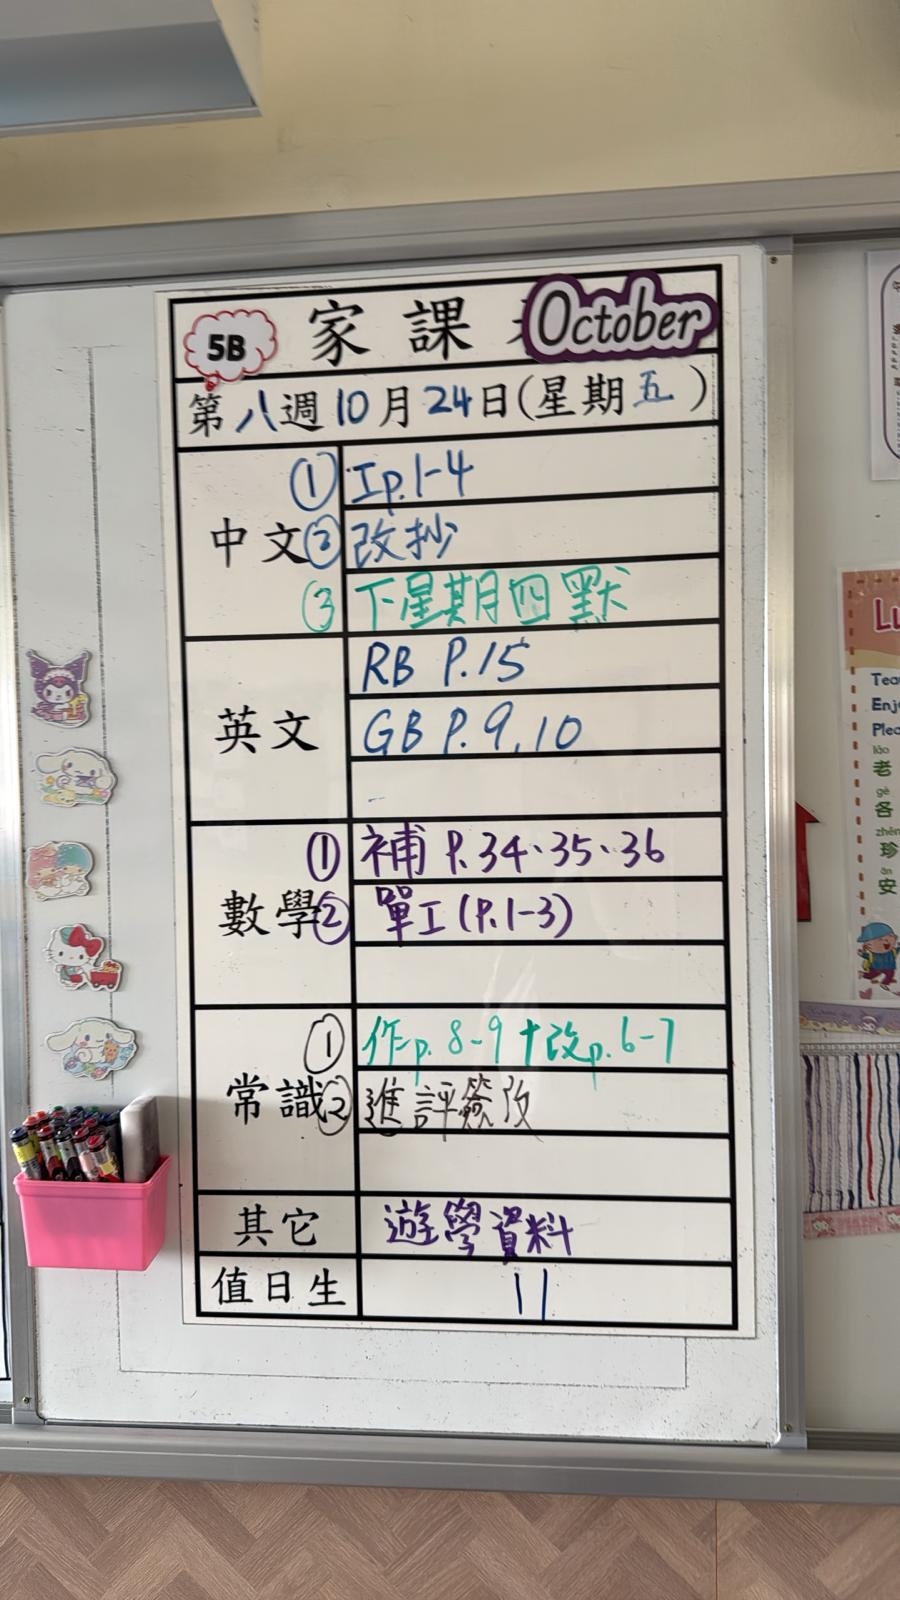 5B 家課 October
第八週10月24日(星期五)
中文
① 工p.1-4
② 改抄
③ 下星期四默
英文
RB P.15
GB P.9,10
數學
① 補 P.34、35、36
② 單工(P.1-3)
常識
① 作p.8-9+改p.6-7
② 進評簽改
其它 遊學資料
值日生 11
Tea
Enj
Plea
lǎo
老
gè
各
zhēn
珍
ān
安